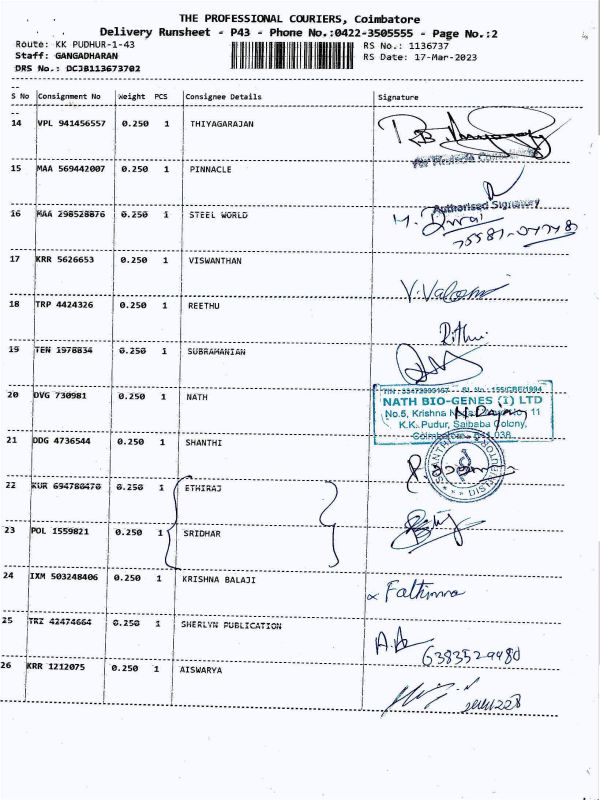 THE PROFESSIONAL COURIERS, Coimbatore
Delivery Runsheet - P43 - Phone No.:0422-3505555 - Page No.:2
Route: KK PUDHUR-1-43 RS No.: 1136737
Staff: GANGADHARAN RS Date: 17-Mar-2023
DRS No.: DCJB113673702
S No Consignment No Weight PCS Consignee Details Signature
14 VPL 941456557 0.250 1 THIYAGARAJAN
15 MAA 569442007 0.250 1 PINNACLE
Authorised Signatory
16 MAA 298528876 0.250 1 STEEL WORLD
17 KRR 5626653 0.250 1 VISWANTHAN
18 TRP 4424326 0.250 1 REETHU
Rithu
19 TEN 1978834 0.250 1 SUBRAMANIAN
20 DVG 730981 0.250 1 NATH
NATH BIO-GENES (I) LTD
No.5, Krishna 11
K.K. Pudur, Saibaba Colony,
21 DDG 4736544 0.250 1 SHANTHI
22 KUR 694780470 0.250 1 ETHIRAJ
23 POL 1559821 0.250 1 SRIDHAR
24 IXM 503248406 0.250 1 KRISHNA BALAJI
Fathima
25 TRZ 42474664 0.250 1 SHERLYN PUBLICATION
6383529480
26 KRR 1212075 0.250 1 AISWARYA